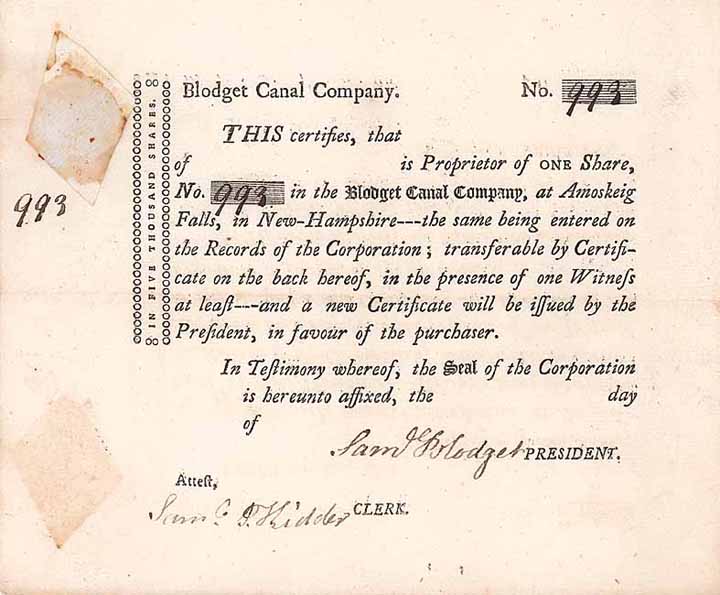 Blodget Canal Company. No. 993
THIS certifies, that
of is Proprietor of ONE Share,
No. 993 in the Blodget Canal Company, at Amoskeig
Falls, in New-Hampshire---the same being entered on
the Records of the Corporation; transferable by Certifi-
cate on the back hereof, in the presence of one Witneſs
at leaſt---and a new Certificate will be iſſued by the
Preſident, in favour of the purchaser.
In Teſtimony whereof, the Seal of the Corporation
is hereunto affixed, the day
of
Samd Blodget PRESIDENT.
Atteſt,
Saml. P. Kidder CLERK.
IN FIVE THOUSAND SHARES.
993